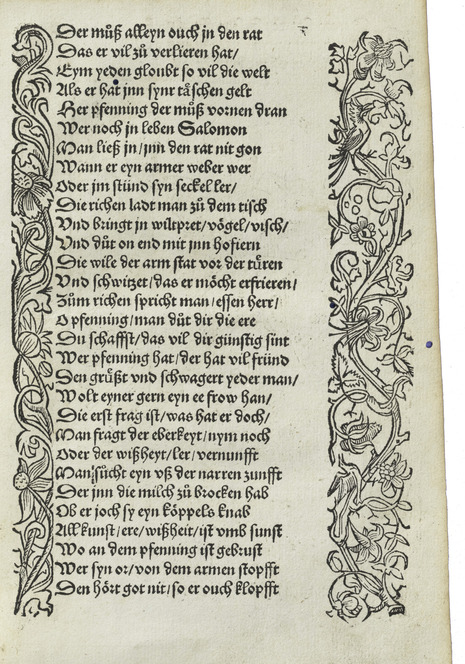 Der můß alleyn ouch jn den rat
Das er vil zů verlieren hat/
Eym yeden gloubt so vil die welt
Als er hat jnn synr täschen gelt
Her pfenning der můß vornen dran
Wer noch jn leben Salomon
Man ließ jn/jnn den rat nit gon
Wann er eyn armer weber wer
Oder jm stünd syn seckel ler/
Die richen ladt man zů dem tisch
Vnd bringt jn wiltpret/vögel/visch/
Vnd důt on end mit jnn hofiern
Die wile der arm stat vor der türen
Vnd schwitzet/das er möcht erfrieren/
Zům richen spricht man/essen herr/
O pfenning/man düt dir die ere
Du schaffst/das vil dir günstig sint
Wer pfenning hat/der hat vil fründ
Den grüßt vnd schwagert yeder man/
Wolt eyner gern eyn ee frow han/
Die erst frag ist/was hat er doch/
Man fragt der eberkeyt/nym noch
Oder der wißheyt/ler/vernunfft
Man sücht eyn vß der narren zunfft
Der jnn die milch zů brocken hab
Ob er joch sy eyn köppels knab
All kunst/ere/wißheit/ist vmb sunst
Wo an dem pfenning ist gebrust
Wer syn or/von dem armen stopfft
Den hört got nit/so er ouch klopfft